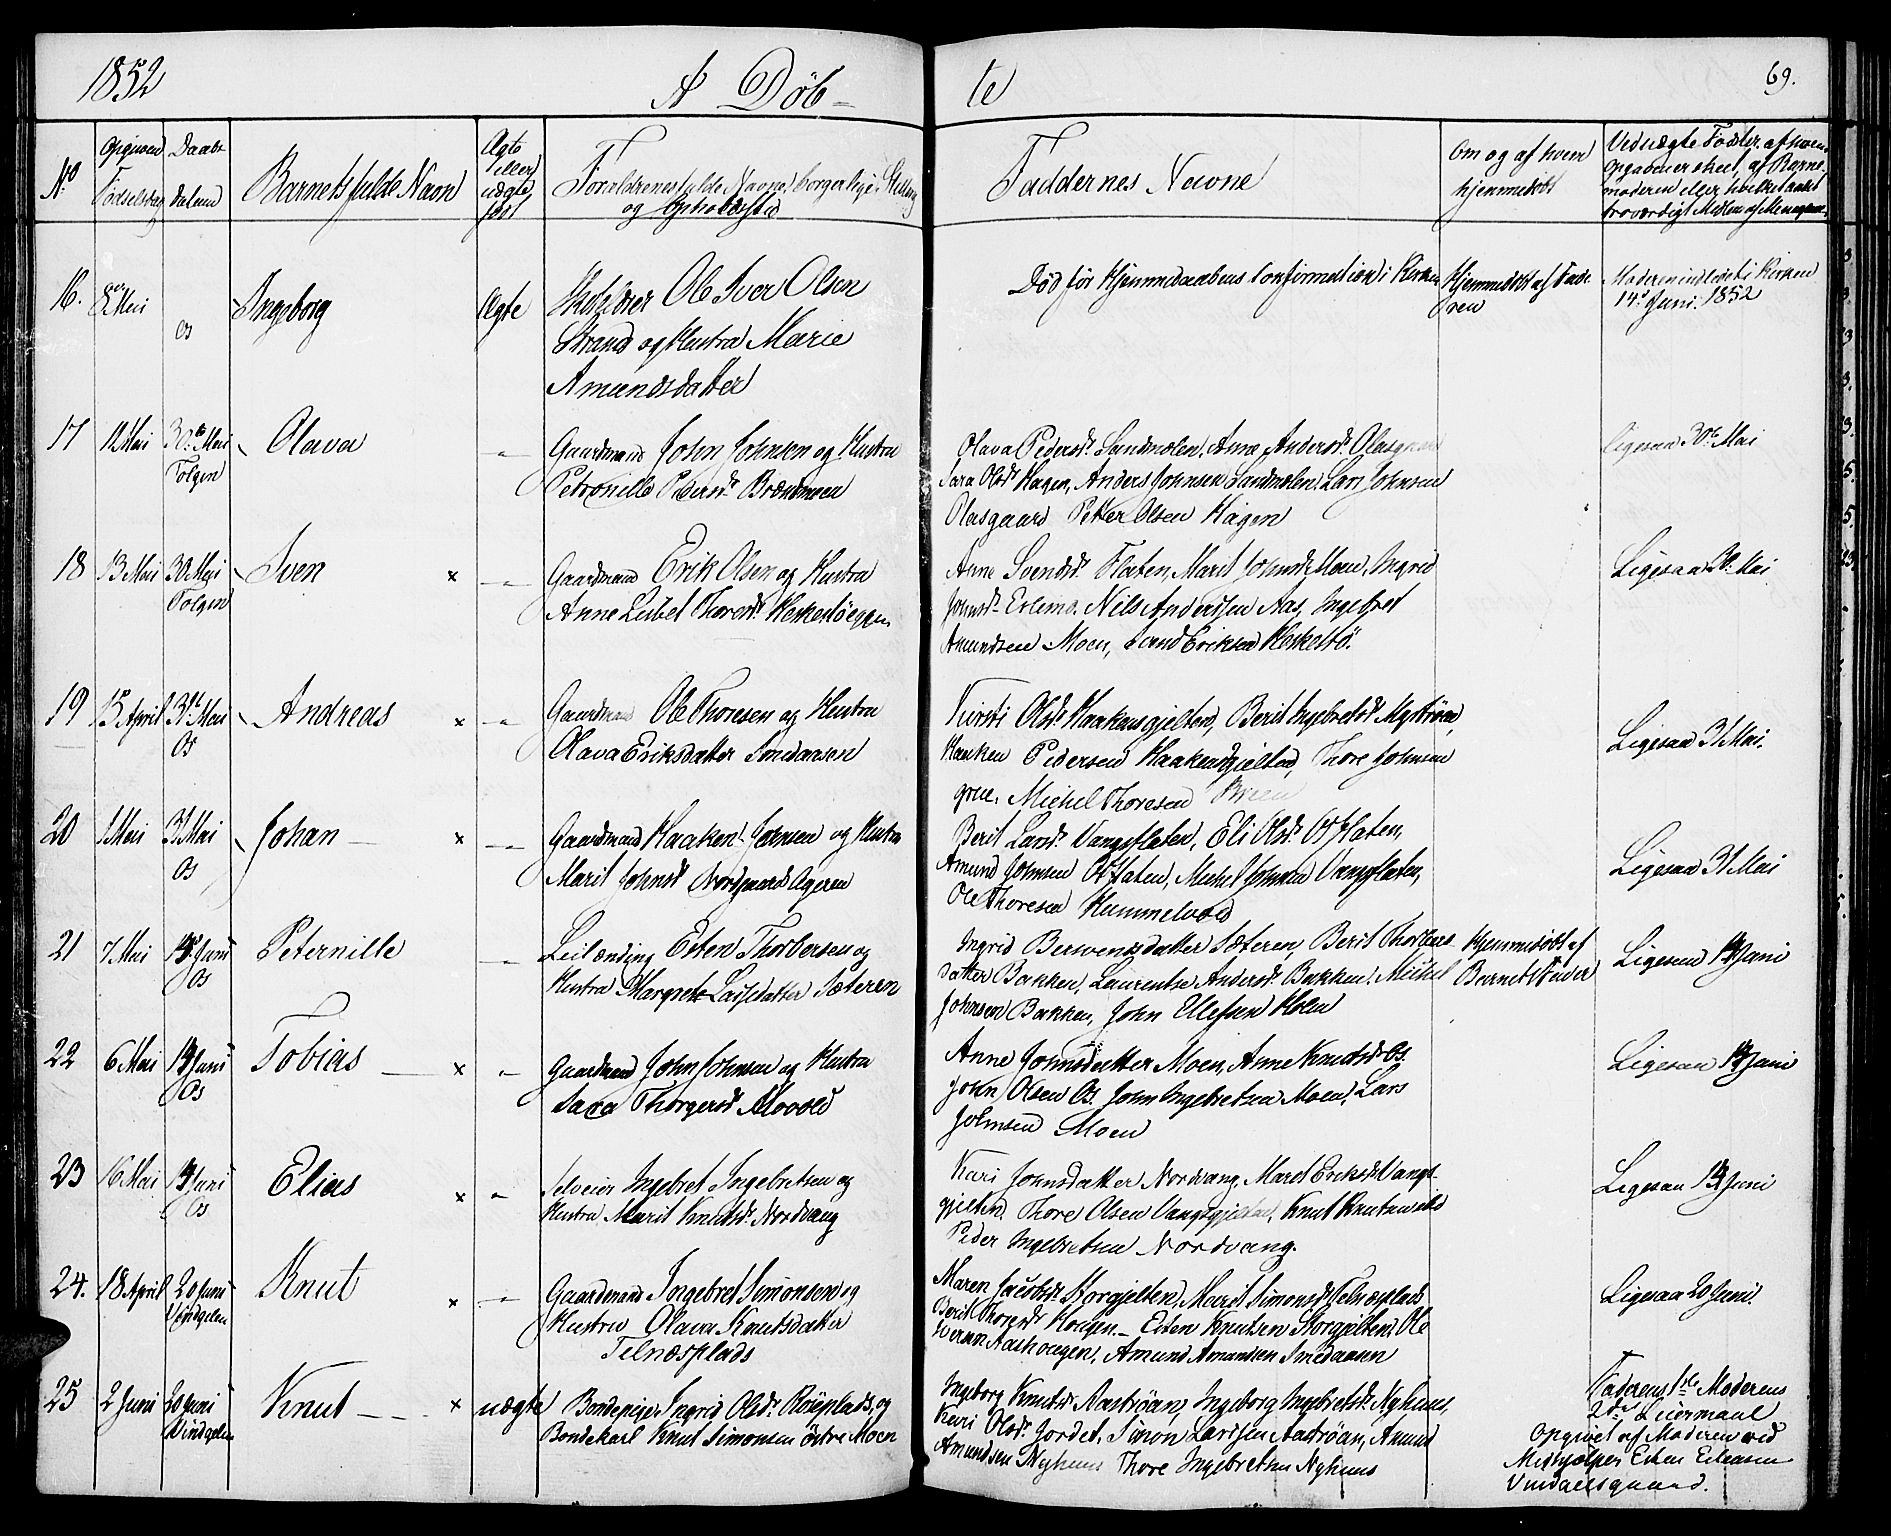 1852
A Døb=
te
69.
No
Opgiven Fødselsdag
Daabs datum
Barnets fulde Navn
Ægte eller uægte født
Forældrenes fulde Navne, borgerlige Stilling
og Opholdssted
Faddernes Navne
Om og af hvem
hjemmedøbt
Ved uægte Fødsler, af hvem
Opgaven er skeet, af Barne-
moderen eller hvilket andet
troværdigt Medlem af Menigheden
16.
8de Mai
Os
Ingeborg
Ægte
Ole Iver Olsen
Strand og Hustru Marie
Amundsdatter
Død før Hjemmedaabens Confirmation i Kirken
Hjemmedøbt af Fade-
ren
Moderen indledet i Kirken
14de Juni 1852
17
12 Mai
30te Mai
Tolgen
Olava
Gaardmand John Johnsen og Hustru
Petronille Pedersd. Brændmoen
Olava Pedersd. Sandmælen, Anne Andersd. Olasgaard
Sara Olsd. Hagen, Anders Johnsen Sandmælen, Lars Johnsen
Olasgaard Petter Olsen Hagen
Ligesaa 30te Mai
18
13 Mai
30 Mai
Tolgen
Sven
x
Gaardmand Erik Olsen og Hustru
Anne Lisbet Thoresd.
Anne Svendsd. Flaten, Marit Johnsd. Moen, Ingrid
Johnsd. Erlimo, Nils Andersen Aas, Ingebret
Amundsen Moen, Svend Eriksen
Ligesaa 30 Mai
19
15 April
31te Mai
Os
Andreas
x
Gaardmand Ole Thoresen og Hustru
Olava Eriksdatter Smedaasen
Kirsti Olsd. Haakensgjelten, Berit Ingebretsd. Nystrøen,
Haaken Pedersen Haakensgjelten, Thore Johnsen
Michel Thoresen
Ligesaa 31 Mai.
20
1 Mai
31 Mai
Os
Johan
x
Gaardmand Haaken Jonsen og Hustru
Marit Johnsd. Nordgaards Ageren
Berit Larsd. Vangsflaten, Eli Olsd. Osflaten,
Amund Johnsen Osflaten, Michel Johnsen Vangsflaten,
Ole Thoresen Hummelvold
Ligesaa 31 Mai
21
7 Mai
14 Juni
Os
Peternille
Leilænding Esten Thorbersen og
Hustru Margrete Larsdatter Sæteren
Ingrid Bersvendsdatter Sæteren, Berit Thorbers-
datter Bakken, Laurentse Andersd. Bakken, Michel
Johnsen Bakken, John Ellefsen Holm
Hjemmedøbt af
Barnets Fader
Ligesaa 14 Juni
22
6 Mai
14 Juni
Os
Tobias
x
Gaardmand John Johnsen og Hustru
Sara Thorgersd. Movold
Anne Johnsdatter Moen, Anne Knutsd. Os.
John Olsen Os. John Ingebretsen Moen, Lars
Johnsen Moen
Ligesaa 14 Juni
23
16 Mai
14 Juni
Os
Elias
x
Selveier Ingebret Ingebretsen og
Hustru Marit Knutsd. Nordvang
Kari Johnsdatter Nordvang, Maret Eriksd. Vangs-
gjelten, Thore Olsen Vangsgjelten, Knut Knutsen
Peder Ingebretsen Nordvang.
Ligesaa 14 Juni
24.
18 April
20 Juni
Vindgelen
Knut
x
Gaardmand Ingebret Simonsen og
Hustru Olava Knutsdatter
Telnæsplads
Maren Jacobsd. Storgjelten, Marit Simonsd. Telnæsplads
Berit Thoresd. Hougen – Esten Knutsen Storgjelten, Ole
Iversen Aashougen, Amund Amundsen Smedaasen
Ligesaa 20 Juni.
25
2 Juni
20 Juni
Vindgelen
Knut
x
uægte
Bondepige Ingrid Olsd. Røeplads og
Bondekarl Knut Simonsen østre Moen
Ingeborg Knutsd. Aastrøan, Ingeborg Ingebretsd. Nyhuus,
Kari Olsd. Jordet, Simon Larssen Aastrøan, Amund
Amundsen Nyhuus Thore Ingebretsen Nyhuus
Faderens 1ste Moderens
2det Leiermaal
Opgivet af Moderen ved
Medhjælper Esten Estensen
Vindalsgaard.